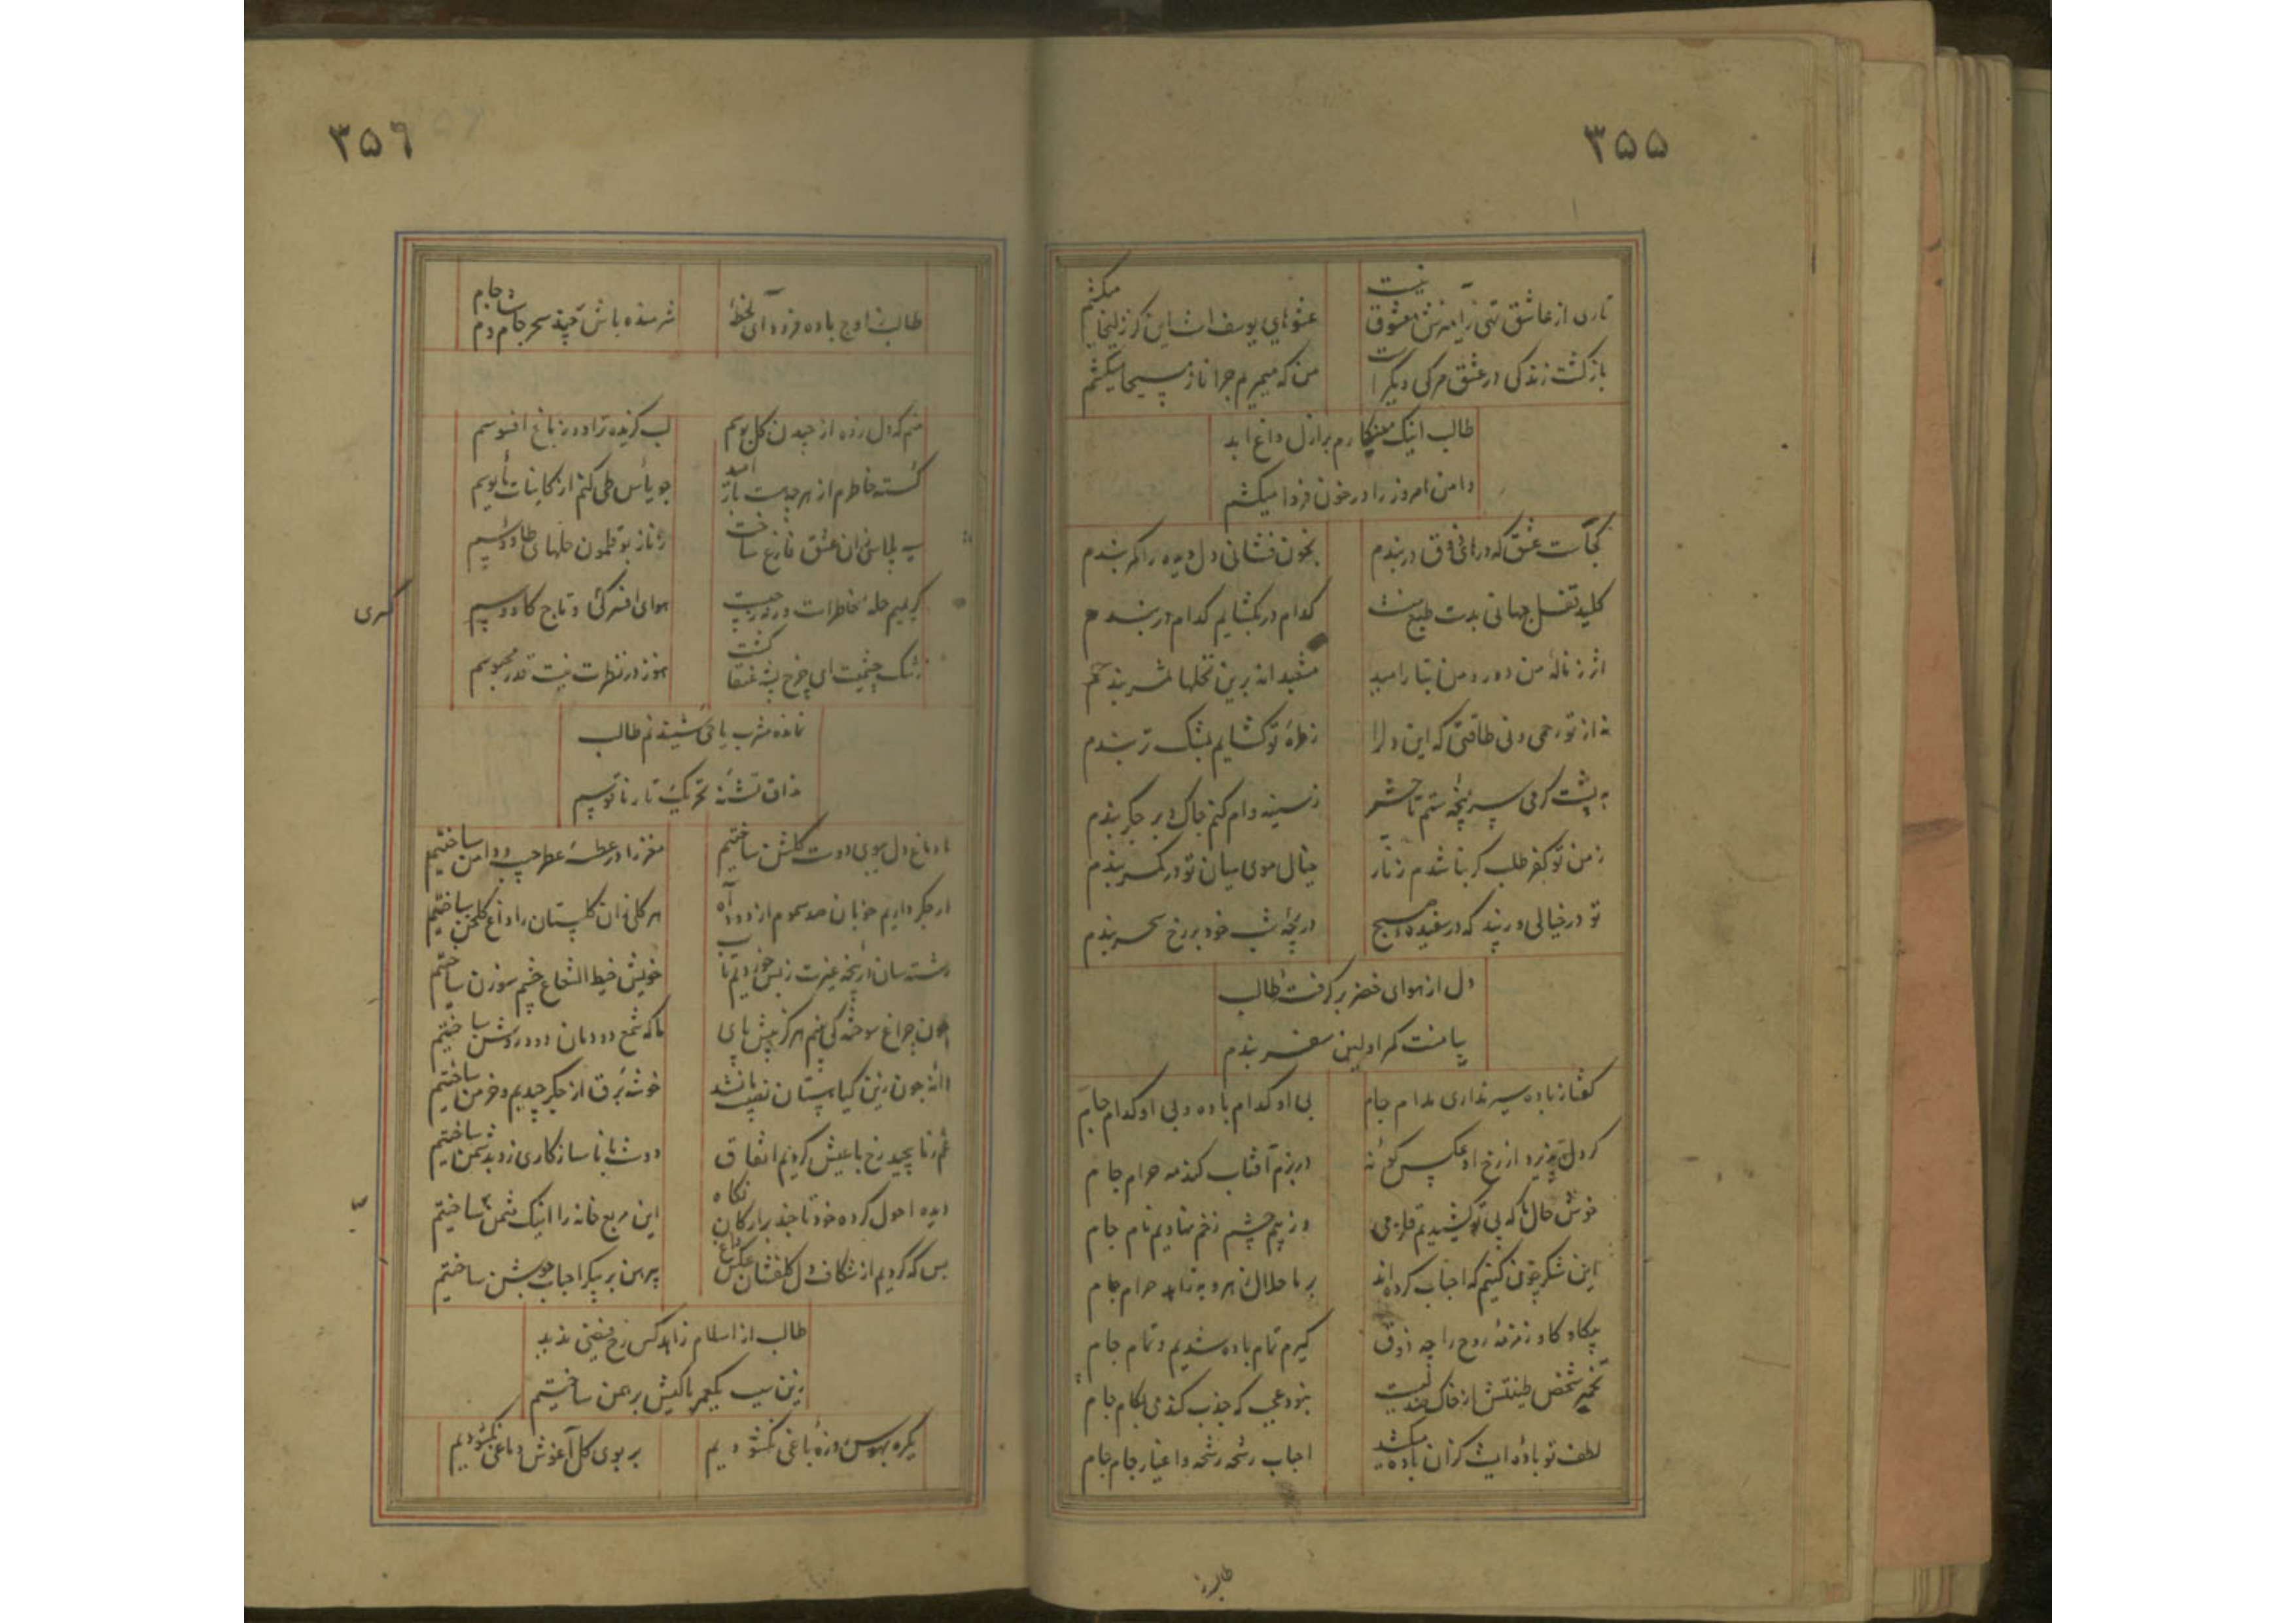 ۳۵۵
تاری از عاشق تنی را بر تن معشوق نیست
عشوهای یوسف است این کز زلیخا میکشم
بازگشت زندگی در عشق مرگی دیگر است
من که میمیرم چرا ناز مسیحا میکشم
طالب اینک مینگارم بر ازل داغ ابد
دامن امروز را در خون فردا میکشم
کجاست عشق که در بر فرق در بندم
بخون فشانی دل دیده را کمر بندم
کلید قفل جهانی بدست طبع منست
کدام در بگشایم کدام در بندم
اثر ز ناله من دور و من بتار امید
مشعبدانه برین نخلها ثمر بندم
نه از تو رحمی و نی طاقتی که این دل را
ز طره تو گشایم بمشک تر بندم
به پشت گرمی سرپنجه ستم تا حشر
ز سینه وام کنم چاک و بر جگر بندم
ز من تو کفر طلب کر بنا شدم زنار
خیال موی میان تو در کمر بندم
تو در خیالی در بند که در سفیده صبح
دریچه شب خود بر رخ سحر بندم
دل از هوای خضر بر گرفت طالب
بیا منت کمر اولین سفر بندم
گفتا ز باده سیر نداری مدام جام
بی او کدام باده و بی او کدام جام
گر دل پذیرد از رخ او عکس گونه
در بزم آفتاب کند مه حرام جام
خوش حال ما که پی تو کشیدیم قلزمی
وز بیم چشم زخم نهادیم نام جام
این شکر چون کنیم که احباب کرده اند
بر ما حلال زهر و به زاهد حرام جام
بیگاه و گاه زمزمه روح را چه ذوق
گیرم تمام باده شدیم و تمام جام
تخمیر شخص طینتش از خاک میست
نبود عجب که جذب کند می بکام جام
لطف تو باده ایست کز آن باده میکشد
احباب رشحه رشحه و اغیار جام جام
طالب ز
۳۵۶
طالب ز اوج باده فرود آی لحظه
شرمنده باش چند سحر جام و شام جام
منم که دل زده از چیدن گل بوسم
لب گزیده تراود ز باغ افسوسم
گسسته خاطرم از هر چه هست باز امید
چو یأس طی کنم از کاینات مأیوسم
به پلاسی از آن عشق فارغ ساخت
ز ناز بوقلمون حلهای طاووسم
کریم حله خاطرات در ره جیب
هوای افسر کی و تاج کاووسم
کسری
ز تنگ چشمیت ای چرخ پشه عنقا گشت
هنوز در نظرت نیست قدر محبوسم
نمانده مشرب یا حی شنیدنم طالب
مذاق تشنه تحریک تار ناقوسم
ما دماغ دل ببوی دوست گلشن ساختیم
مغز را در عطسه عطر جیب و دامن ساختیم
از جگر دادیم خوبان صد سموم از دود آه
هر گلی زان گلستان را داغ گلخن ساختیم
رشته سان در پنجه غیرت ز بس خوردیم تاب
خویش خیط الشعاع چشم سوزن ساختیم
چون چراغ سوخته کی بینم هرگز پیش پای
ما که شمع دودمان دود روشن ساختیم
دانه چون زین گیاهستان نصیب ما نشد
خوشه برق از جگر چیدیم و خرمن ساختیم
غم ز ما پیچید رخ با عیش کردیم اتفاق
دوست با ما ناسازگاری زد بدشمن ساختیم
دیده احول کرده خود تا چند بر ارکان نگاه
این مربع خانه را اینک مثمن ساختیم
بس که کردیم از شکاف دل گلفشان عکس داغ
پیرهن بر پیکر احباب جوشن ساختیم
طالب از اسلام زاهد کس رخ فیضی ندید
زین سبب یکعمر با کیش برهمن ساختیم
یکره بهوس روزه باغی نگشودیم
بر بوی گل آغوش دماغی نگشودیم